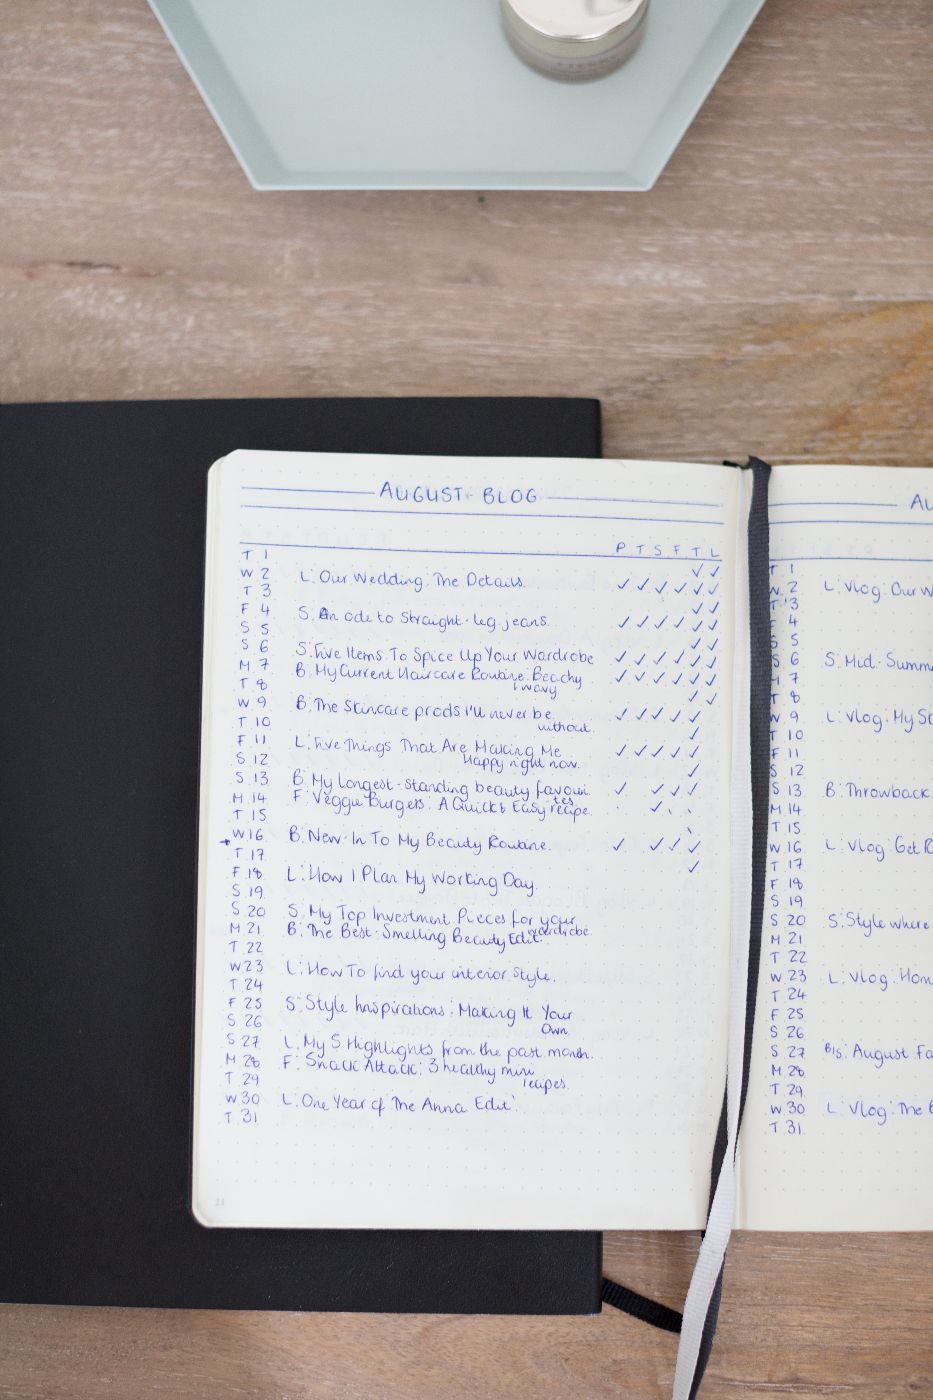 AUGUST - BLOG
P T S F T L
T 1 ✓ ✓
W 2 L: Our Wedding: The Details. ✓ ✓ ✓ ✓ ✓ ✓
T 3 ✓ ✓
F 4 S: An ode to straight-leg jeans. ✓ ✓ ✓ ✓ ✓ ✓
S 5 ✓ ✓
S 6 S: Five Items To Spice Up Your Wardrobe ✓ ✓ ✓ ✓ ✓ ✓
M 7 B: My Current Haircare Routine: Beachy ✓ ✓ ✓ ✓ ✓ ✓
wavy
T 8 ✓ ✓
W 9 B: The Skincare prods I'll never be ✓ ✓ ✓ ✓ ✓
without.
T 10 ✓
F 11 L: Five Things That Are Making Me ✓ ✓ ✓ ✓ ✓
Happy right now.
S 12 ✓
S 13 B: My Longest-standing beauty favouri ✓ ✓ ✓ ✓
tes
M 14 F: Veggie Burgers: A Quick & Easy recipe.
T 15
W 16 B: New-In To My Beauty Routine. ✓ ✓ ✓ ✓
T 17 ✓
F 18 L: How I Plan My Working Day
S 19
S 20 S: My Top Investment Pieces for your
wardrobe
M 21 B: The Best-Smelling Beauty Edit.
T 22
W 23 L: How To find your interior style.
T 24
F 25 S: Style Inspirations: Making It Your
Own.
S 26
S 27 L: My 5 Highlights from the past month.
M 28 F: Snack Attack: 3 healthy mini
recipes.
T 29
W 30 L: One Year of The Anna Edit!
T 31
21
AU
T 1
W 2 L: Vlog: Our W
T 3
F 4
S 5
S 6 S: Mid-Summ
M 7
T 8
W 9 L: Vlog: My St
T 10
F 11
S 12
S 13 B: Throwback
M 14
T 15
W 16 L: Vlog: Get R
T 17
F 18
S 19
S 20 S: Style where
M 21
T 22
W 23 L: Vlog: Hom
T 24
F 25
S 26
S 27 B/S: August Fa
M 28
T 29
W 30 L: Vlog: The
T 31